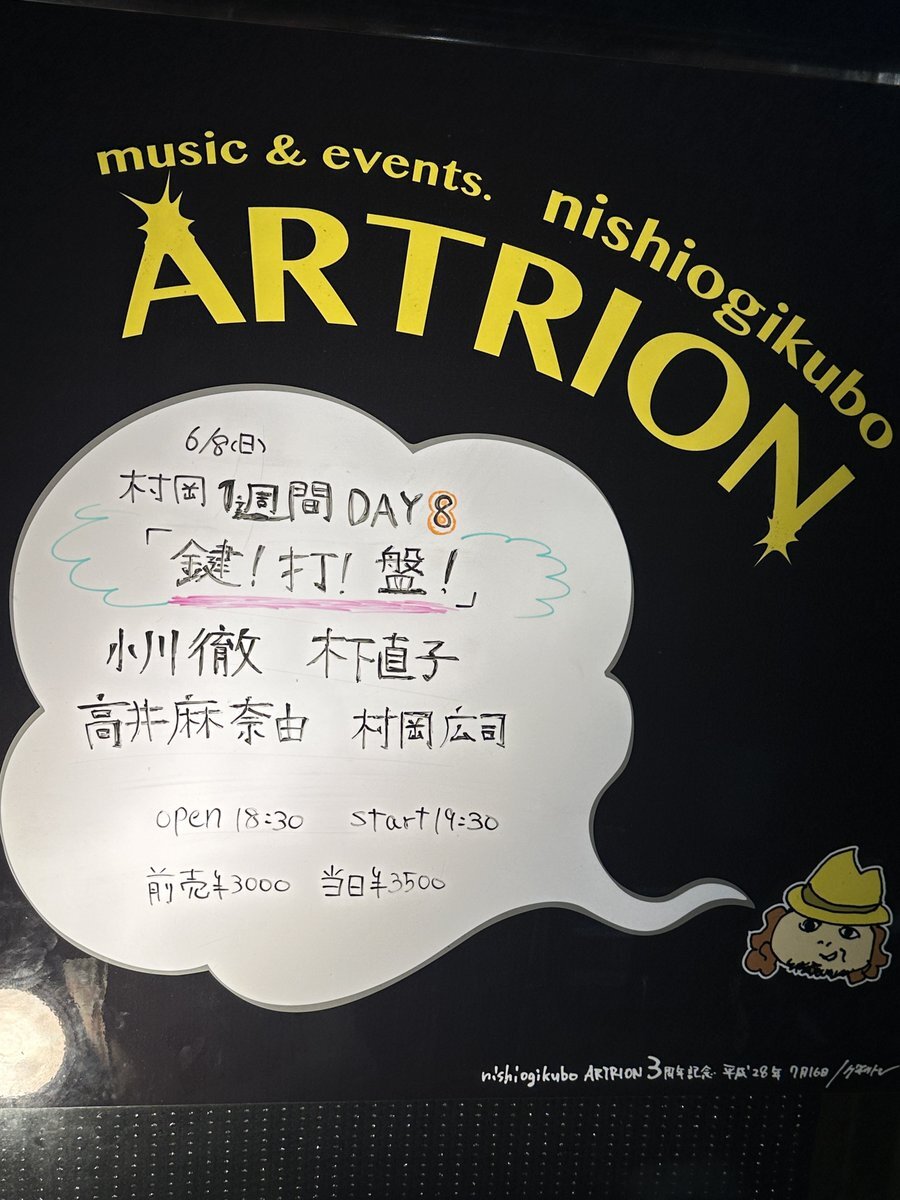 music & events.
nishiogikubo
ARTRION
6/8(日)
村岡1週間 DAY 8
「鍵！打！盤！」
小川徹　木下直子
高井麻奈由　村岡広司
open 18:30　start 19:30
前売¥3000　当日¥3500
nishiogikubo ARTRION 3周年記念 平成'28年 7月16日